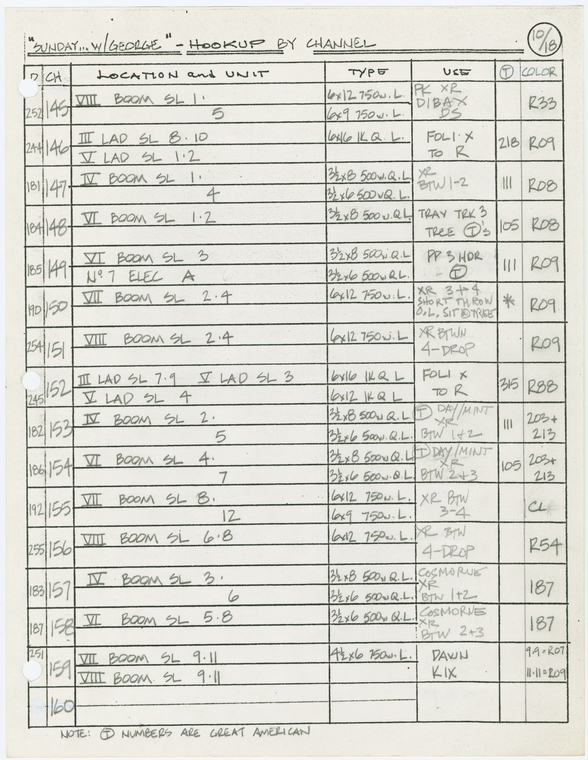 "SUNDAY... W/GEORGE" - HOOKUP BY CHANNEL 10/18
D CH. LOCATION and UNIT TYPE USE Ⓣ COLOR
252 145 VIII BOOM SL 1. 6x12 750w. L. PK XR R33
5 6x9 750w. L. DIBAX
DS
244 146 III LAD SL 8.10 6x16 1K Q. L. FOLI. X 218 R09
V LAD SL 1.2 TO R
181 147 IV BOOM SL 1. 3½x8 500w.Q.L. XR 111 R08
4 3½x6 500w.Q.L. BTW 1-2
184 148 VI BOOM SL 1.2 3½x8 500w.Q.L TRAY TRK 3 105 R08
TREE Ⓣ's
185 149 VI BOOM SL 3 3½x8 500w.Q.L PP 3 HDR 111 R09
Nº 7 ELEC A 3½x6 500w.Q.L. - Ⓣ
190 150 VII BOOM SL 2.4 6x12 750w. L. XR 3+4 * R09
SHORT THROW
O.L. SIT @ TREE
254 151 VIII BOOM SL 2.4 6x12 750w. L. XR BTWN R09
4-DROP
245 152 III LAD SL 7.9 V LAD SL 3 6x16 1K Q L FOLI X 315 R88
V LAD SL 4 6x12 1K Q L TO R
182 153 IV BOOM SL 2. 3½x8 500w Q.L. Ⓣ DAY/MINT 111 203+
XR 213
5 3½x6 500w.Q.L. BTW 1+2
186 154 VI BOOM SL 4. 3½x8 500w Q.L Ⓣ DAY/MINT 105 203+
XR 213
7 3½x6 500w.Q.L BTW 2+3
192 155 VII BOOM SL 8. 6x12 750w. L. XR BTW CL
12 6x9 750w. L. 3-4
255 156 VIII BOOM SL 6.8 6x12 750w. L. XR BTW R54
4-DROP
183 157 IV BOOM SL 3. 3½x8 500w Q.L. COSMORNE 187
XR
6 3½x6 500w Q.L. BTW 1+2
187 158 VI BOOM SL 5.8 3½x6 500w Q.L. COSMORNES 187
XR
BTW 2+3
251 159 VII BOOM SL 9.11 4½x6 750w. L. DAWN 9.9=R07
VIII BOOM SL 9.11 KIX 11.11=R09
160
NOTE: Ⓣ NUMBERS ARE GREAT AMERICAN